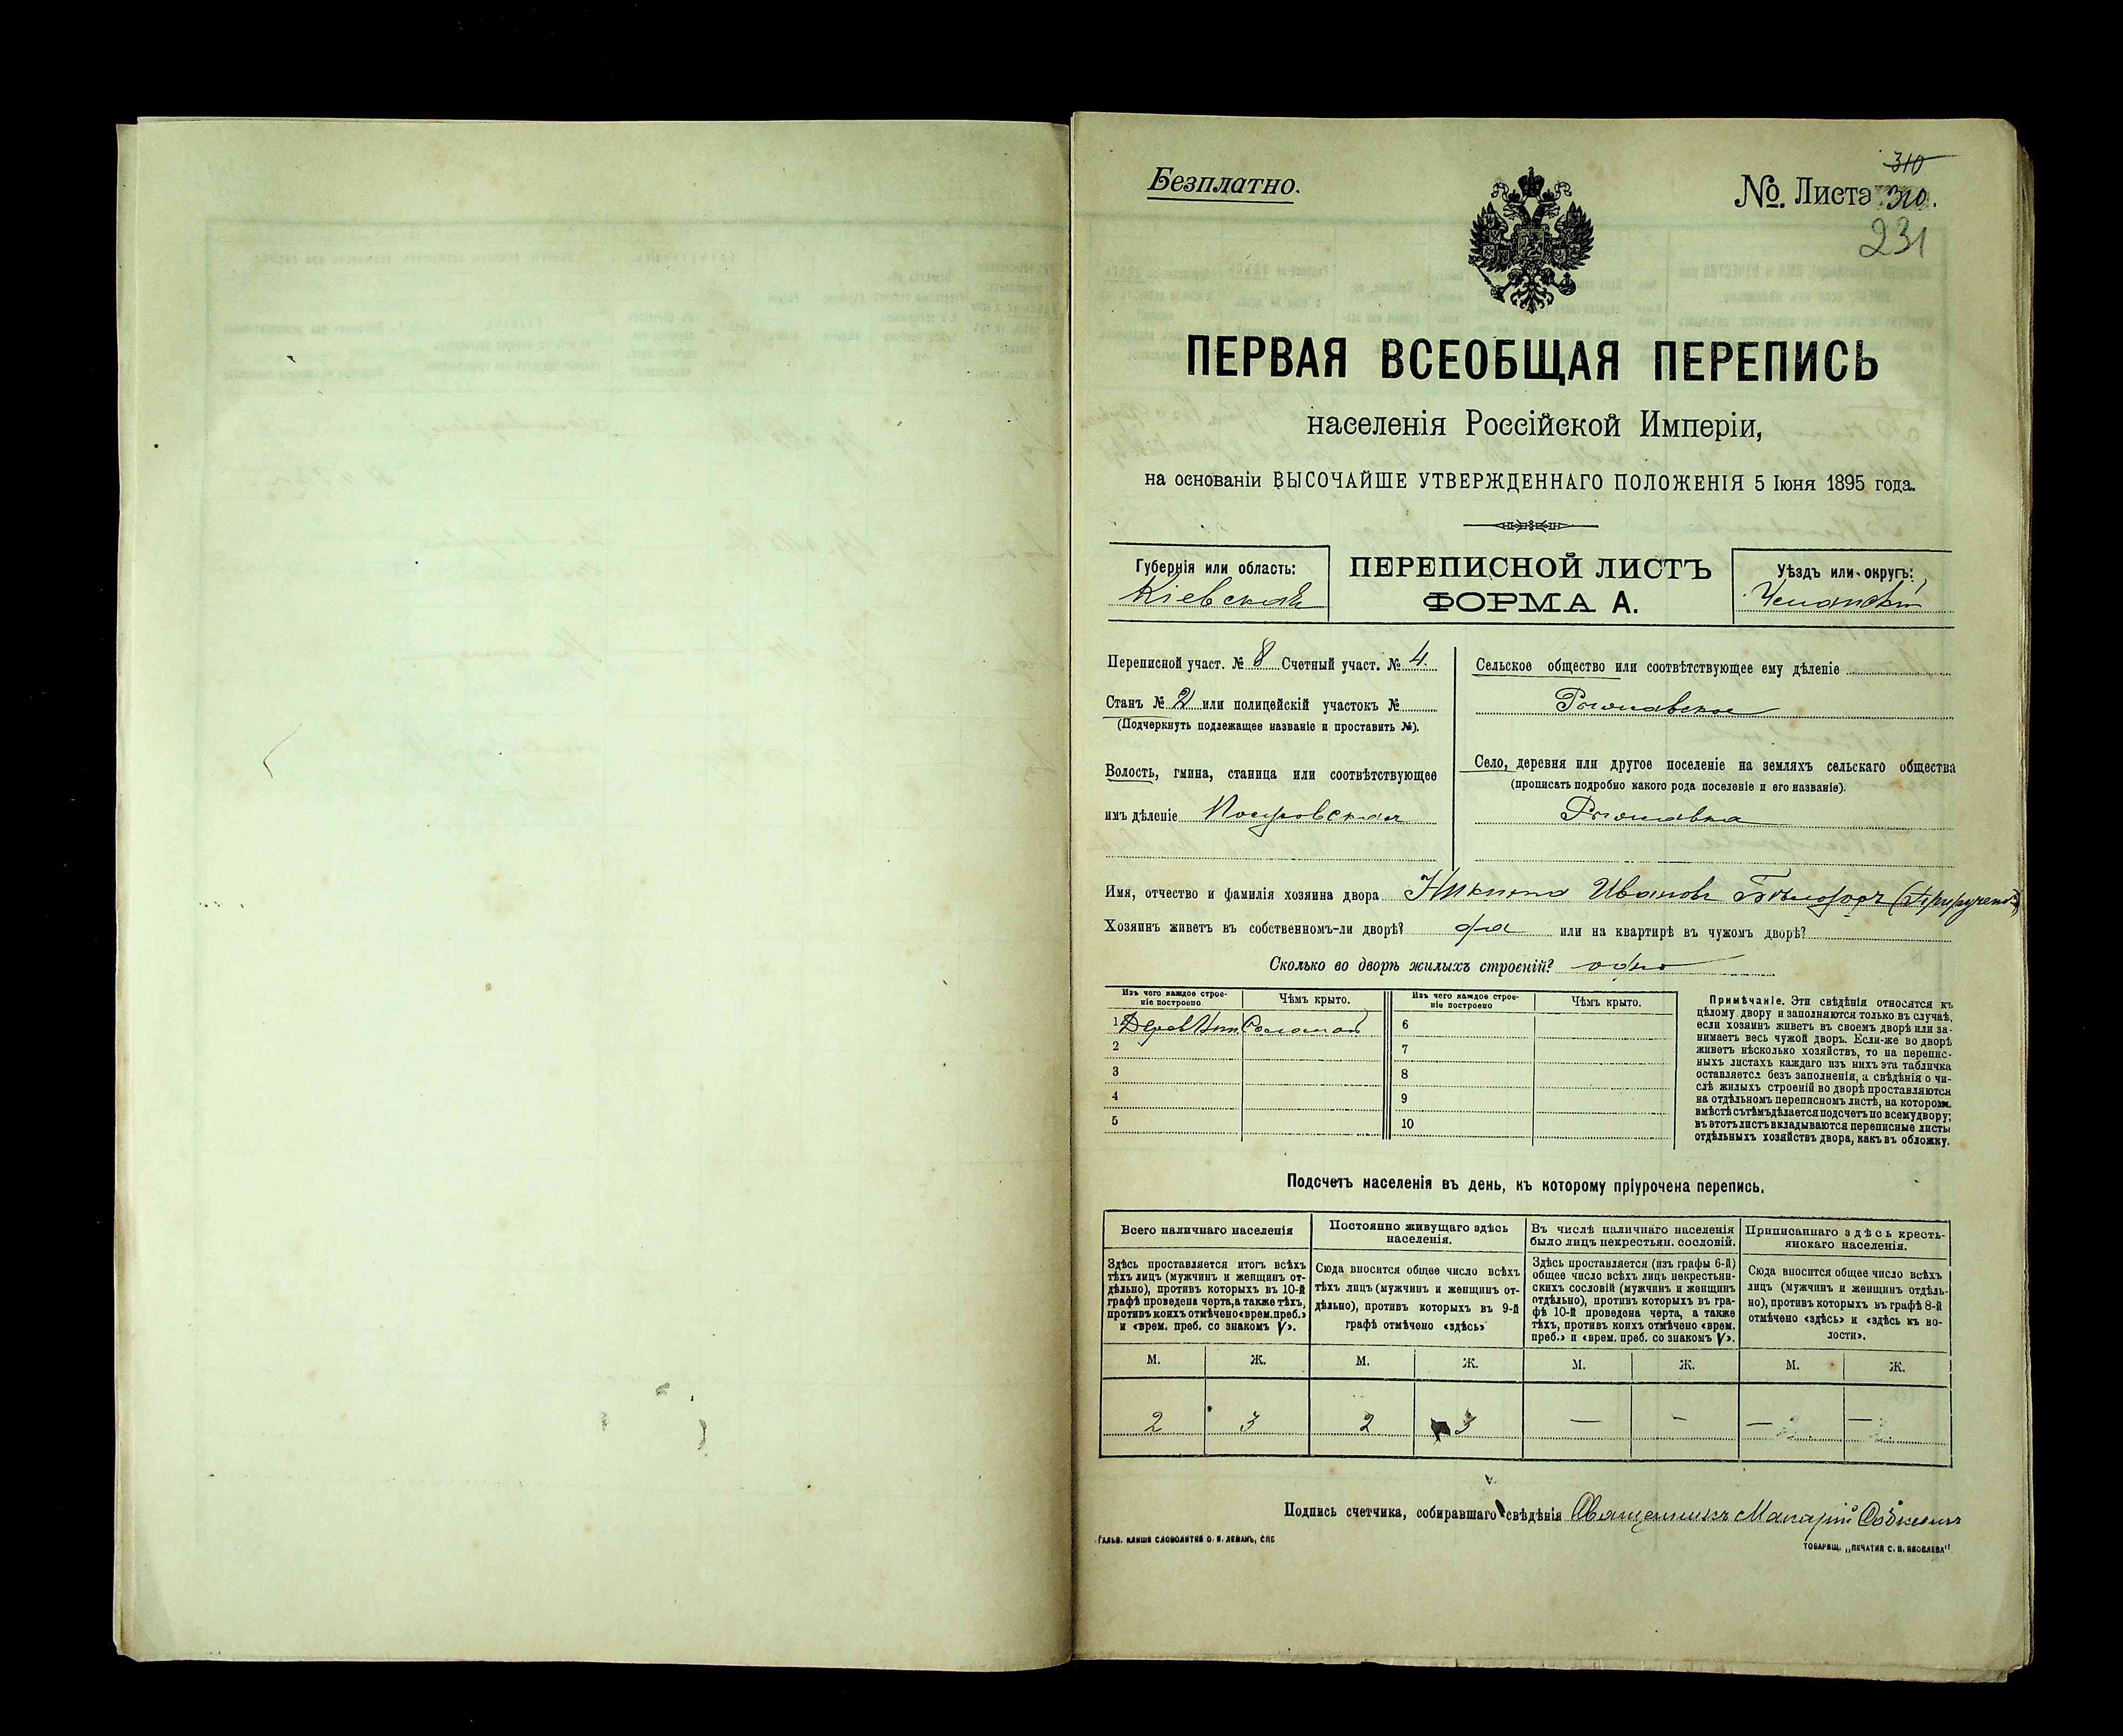 Безплатно.
310
№. Листа 310.
231
ПЕРВАЯ ВСЕОБЩАЯ ПЕРЕПИСЬ
населенія Россійской Имперіи,
на основаніи ВЫСОЧАЙШЕ УТВЕРЖДЕННАГО ПОЛОЖЕНІЯ 5 Іюня 1895 года.
Губернія или область:
Кіевская
ПЕРЕПИСНОЙ ЛИСТЪ
ФОРМА А.
Уѣздъ или округъ:
Уманскій
Переписной участ. № 8 Счетный участ. № 4.
Станъ № 2 или полицейскій участокъ №
(Подчеркнуть подлежащее названіе и проставить №).
Волость, гмина, станица или соотвѣтствующее
имъ дѣленіе Покровская
Сельское общество или соотвѣтствующее ему дѣленіе
Село, деревня или другое поселеніе на земляхъ сельскаго общества
(прописать подробно какого рода поселеніе и его названіе).
Имя, отчество и фамилія хозяина двора Никита Ивановъ
Хозяинъ живетъ въ собственномъ-ли дворѣ? да или на квартирѣ въ чужомъ дворѣ?
Сколько во дворѣ жилыхъ строеній? одно
Изъ чего каждое строе-
ніе построено
Чѣмъ крыто.
Изъ чего каждое строе-
ніе построено
Чѣмъ крыто.
1 Соломой
2
3
4
5
6
7
8
9
10
Примѣчаніе. Эти свѣдѣнія относятся къ
цѣлому двору и заполняются только въ случаѣ,
если хозяинъ живетъ въ своемъ дворѣ или за-
нимаетъ весь чужой дворъ. Если-же во дворѣ
живетъ нѣсколько хозяйствъ, то на перепис-
ныхъ листахъ каждаго изъ нихъ эта табличка
оставляется безъ заполненія, а свѣдѣнія о чи-
слѣ жилыхъ строеній во дворѣ проставляются
на отдѣльномъ переписномъ листѣ, на которомъ
вмѣстѣ съ тѣмъ дѣлается подсчетъ по всему двору;
въ этотъ листъ вкладываются переписные листы
отдѣльныхъ хозяйствъ двора, какъ въ обложку.
Подсчетъ населенія въ день, къ которому пріурочена перепись.
Всего наличнаго населенія
Здѣсь проставляется итогъ всѣхъ
тѣхъ лицъ (мужчинъ и женщинъ от-
дѣльно), противъ которыхъ въ 10-й
графѣ проведена черта, а также тѣхъ,
противъ коихъ отмѣчено «врем. преб.»
и «врем. преб. со знакомъ V».
Постоянно живущаго здѣсь
населенія.
Сюда вносится общее число всѣхъ
тѣхъ лицъ (мужчинъ и женщинъ от-
дѣльно), противъ которыхъ въ 9-й
графѣ отмѣчено «здѣсь»
Въ числѣ наличнаго населенія
было лицъ некрестьян. сословій.
Здѣсь проставляется (изъ графы 6-й)
общее число всѣхъ лицъ некрестьян-
скихъ сословій (мужчинъ и женщинъ
отдѣльно), противъ которыхъ въ гра-
фѣ 10-й проведена черта, а также
тѣхъ, противъ коихъ отмѣчено «врем.
преб.» и «врем. преб. со знакомъ V».
Приписаннаго здѣсь кресть-
янскаго населенія.
Сюда вносится общее число всѣхъ
лицъ (мужчинъ и женщинъ отдѣль-
но), противъ которыхъ въ графѣ 8-й
отмѣчено «здѣсь» и «здѣсь къ во-
лости».
М. Ж. М. Ж. М. Ж. М. Ж.
2 3 2 3 — - — —
Подпись счетчика, собиравшаго свѣдѣнія Священникъ Макарій
ГАЛЬВ. КЛИШЕ СЛОВОЛИТНИ О. И. ЛЕМАНЪ, СПБ
ТОВАРИЩ. „ПЕЧАТНЯ С. П. ЯКОВЛЕВА"